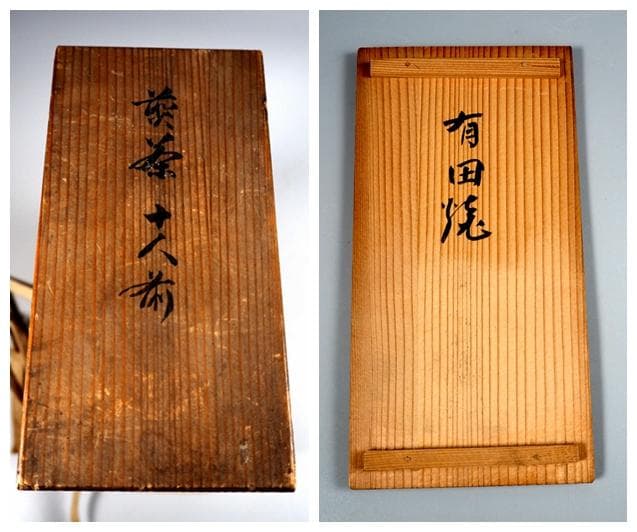 煎茶 十人前
有田焼